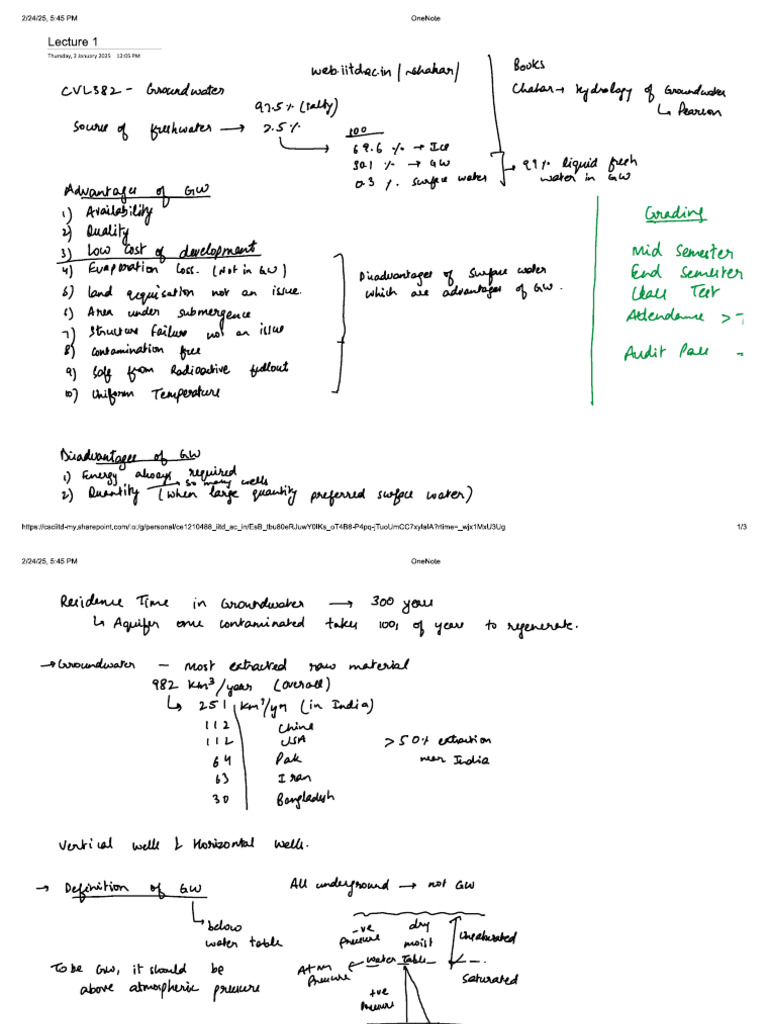 2/24/25, 5:45 PM
OneNote
Lecture 1
Thursday, 2 January 2025 12:05 PM
web.iitd.ac.in/~shakar/
CVL382 - Groundwater
97.5% (salty)
Source of freshwater → 2.5%
100
69.6 % → Ice
30.1 % → GW
0.3 % surface water
→ 99% liquid fresh
water in GW
Books
Chahar → Hydrology of Groundwater
↳ Pearson
Advantages of GW
1) Availability
2) Quality
3) Low cost of development
4) Evaporation Loss. (Not in GW)
5) Land acquisation not an issue.
6) Area under submergence
7) Structure Failure not an issue
8) Contamination free
9) Safe from Radioactive fallout
10) Uniform Temperature
Disadvantages of surface water
which are advantages of GW.
Grading
Mid Semester
End Semester
Class Test
Attendance >
Audit Pass -
Disadvantages of GW
1) Energy always required
→ so many wells
2) Quantity (when large quantity preferred surface water)
https://csciitd-my.sharepoint.com/:o:/g/personal/ce1210488_iitd_ac_in/
1/3
2/24/25, 5:45 PM
OneNote
Residence Time in Groundwater → 300 years
↳ Aquifer once contaminated takes 100s of years to regenerate.
→ Groundwater - most extracted raw material
982 km³/year (overall)
↳ 251 km³/yr (in India)
112 China
112 USA
64 Pak
63 Iran
30 Bangladesh
>50% extraction
near India
Vertical wells & Horizontal wells.
→ Definition of GW
↳ below
water table
To be GW, it should be
above atmospheric pressure
All underground → not GW
-ve
Pressure
dry
moist
Unsaturated
Atm
Pressure
← Water Table
Saturated
+ve
Pressure